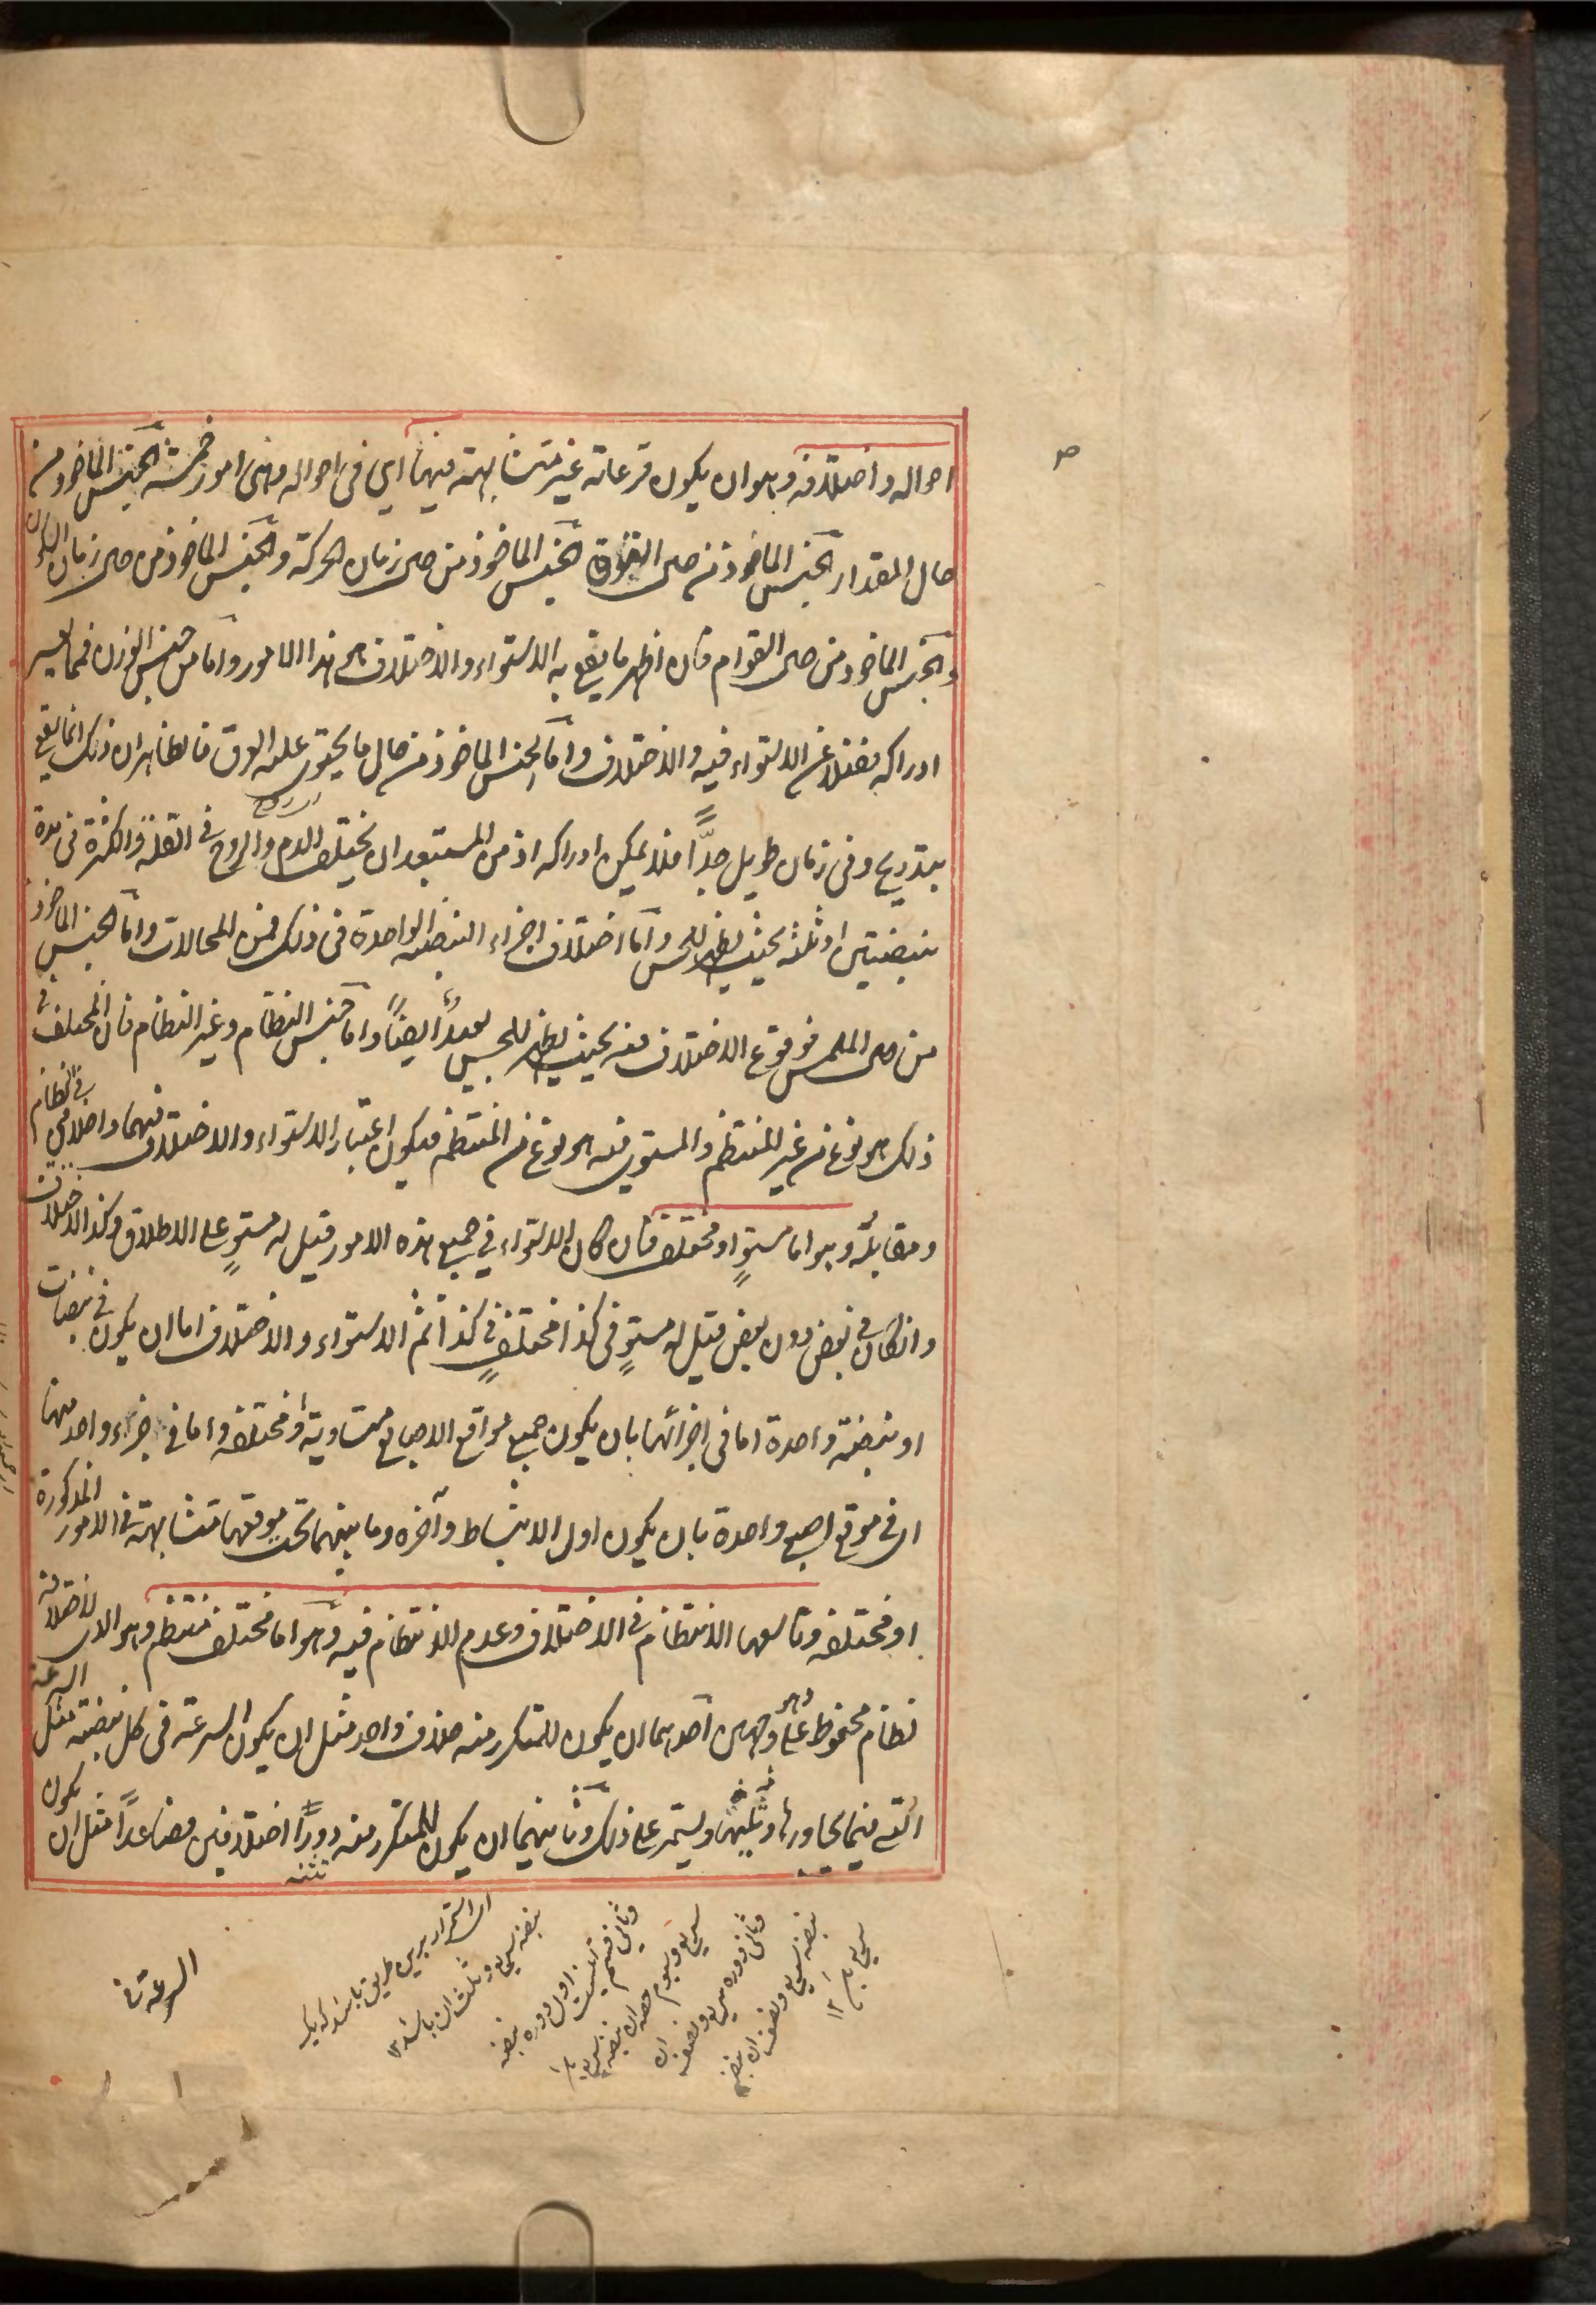 احواله واختلافه وهو ان يكون قرعاته غير متشابهة فيها اي في احواله وهي امور خمسة الجنس الماخوذ من
حال المقدار الجنس الماخوذ من حال القوة الجنس الماخوذ من حال زمان الحركة والجنس الماخوذ من حال زمان السكون
والجنس الماخوذ من حال القوام فان اظهر ما يقع به الاستواء والاختلاف هو هذا الامور واما من جنس الوزن فمما يعسر
ادراكه فضلا عن الاستواء فيه والاختلاف واما الجنس الماخوذ من حال ما يحتوي عليه العرق فالظاهر ان ذلك انما يقع
بتدريج وفي زمان طويل جدًّا فلا يمكن ادراكه اذ من المستبعد ان يختلف الدم والروح في القلة والكثرة في مدة
نبضتين او ثلثه بحيث يظهر للحس واما اختلاف اجزاء النبضه الواحدة في ذلك فمن المحالات واما الجنس الماخوذ
من حال الملمس فوقوع الاختلاف فيه بحيث يظهر للحس بعيدٌ ايضاً واما جنس النظام وغير النظام فان المختلف في
ذلك هو نوع من غير المنتظم والمستوي فيه هو نوع من المنتظم فيكون اعتبار الاستواء والاختلاف فيهما داخلا في النظام
ومقابله وهو اما مستوٍ او مختلف فان كان الاستواء في جميع هذه الامور قيل له مستوٍ على الاطلاق وكذا الاختلاف
وانكان في بعض دون بعض قيل له مستوٍ في كذا مختلف في كذا ثم الاستواء والاختلاف اما ان يكون في نبضات
او نبضة واحدة اما في اجزائها بان يكون جميع مواقع الاصابع متساوية او مختلفه واما في جزء واحد منها
اى في موقع اصبع واحدة بان يكون اول الانبساط وآخره وما بينهما تحت موقعها متشابهة في الامور المذكورة
او مختلفه وتاسعها الانتظام في الاختلاف وعدم الانتظام فيه وهو اما مختلف منتظم وهو الذى لاختلافه
نظام محفوظ وهو على وجهين احدهما ان يكون للمتكرر منه خلاف واحد مثل ان يكون السرعة في كل نبضة مثل السرعة
التي فيما يجاورها وتليها ويستمر على ذلك وثانيهما ان يكون للمتكرر منه دورًا اختلافين فصاعدًا مثل ان يكون
السرعة في
اى استمرار برين طريق باشد كه يك
نبضه سريع وثلث ان باشد ١٢
وثاني قسم
اول دوره نبضه
سريع وسوم حصه ان نبضه سريع
وثاني دوره سريع ونصف ان
نبضه سريع ونصف ان نبضه
سريع ١٢